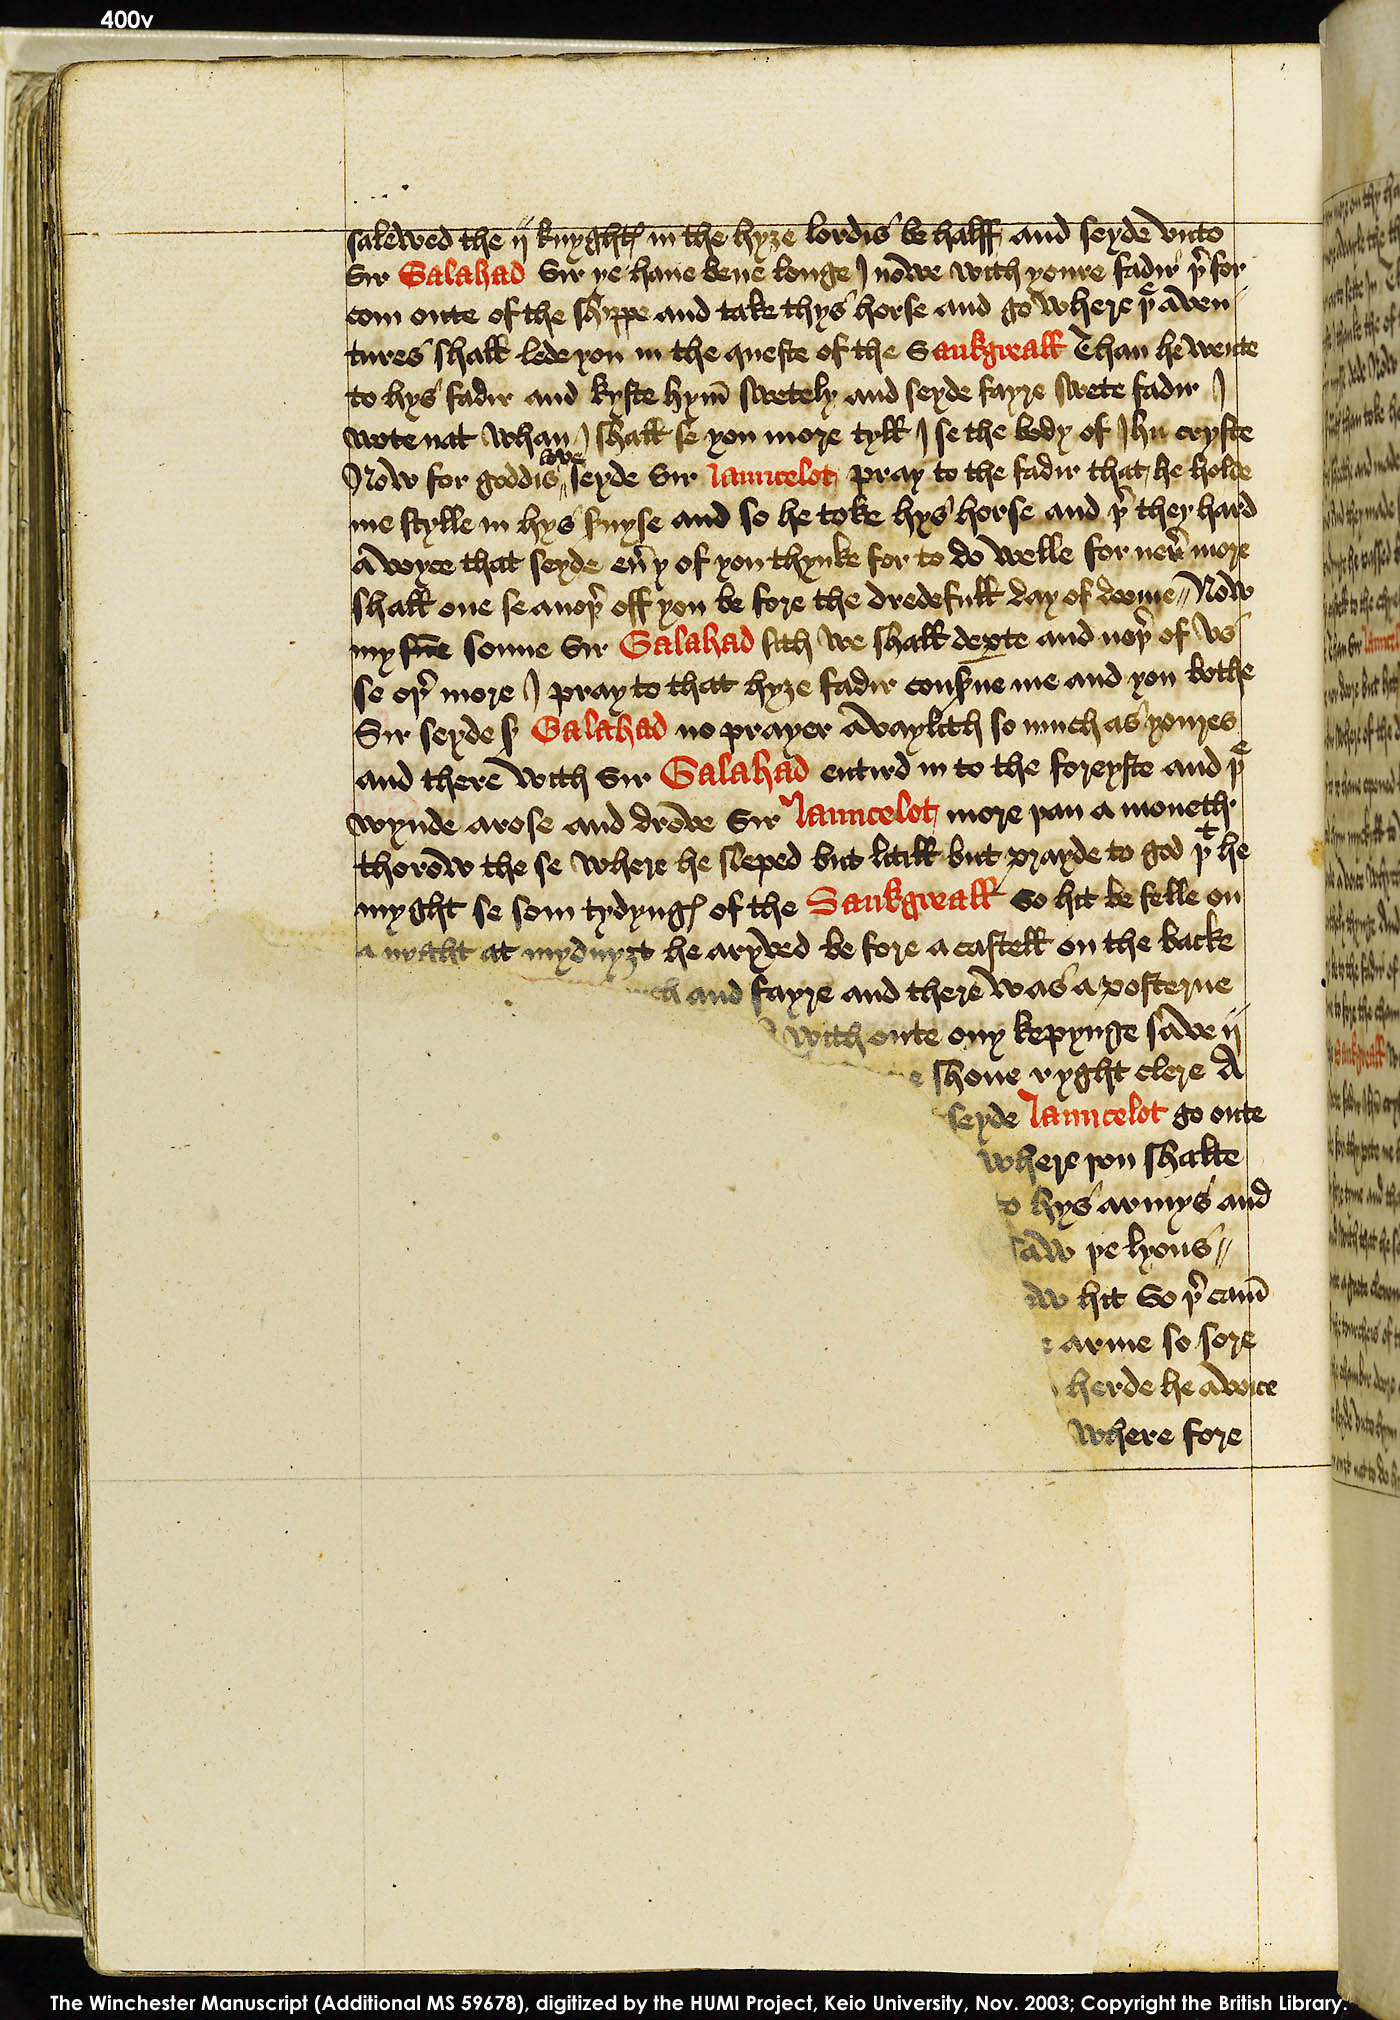 400v
salewed the ij knyghtes in the hyȝe lordis be halff and seyde vnto
Sir Galahad Sir ye haue bene longe I nowe with youre fadir þerfor
com oute of the shyppe and take thys horse and go where þe aven
tures shall lede you in the queste of the Sankgreall Than he wente
to hys fadir and kyste hym̄ swetely and seyde fayre swete fadir I
wote nat whan I shall se you more tyll I se the body of Jhu cryste
Now for goddis love seyde Sir launcelot pray to the fadir that he holde
me stylle in hys seruyse and so he toke hys horse and þer they hard
a voyce that seyde euery of you thynke for to do welle for neuer more
shall one se anoþer off you be fore the dredefull day of doome // Now
my sonne Sir Galahad sith we shall departe and noþer of vs
se oþer more I pray to that hyȝe fadir conserue me and you bothe
Sir seyde sir Galahad no prayer avaylith so much as youres
and there with Sir Galahad entird in to the foreyste and þe
wynde arose and drove Sir launcelot more þan a moneth
thorow the se where he sleped but litill but prayde to god þt he
myght se som tydynges of the Sankgreall So hit be felle on
a nyght at mydnyȝt he aryved be fore a castell on the backe
ch and fayre and there was a posterne
with oute ony kepynge save ij
e shone ryght clere A
seyde launcelot go oute
where þou shalte
to hys armys and
saw þe lyons //
w hit So þer cam̄
e arme so sore
herde he a voice
where fore
The Winchester Manuscript (Additional MS 59678), digitized by the HUMI Project, Keio University, Nov. 2003; Copyright the British Library.